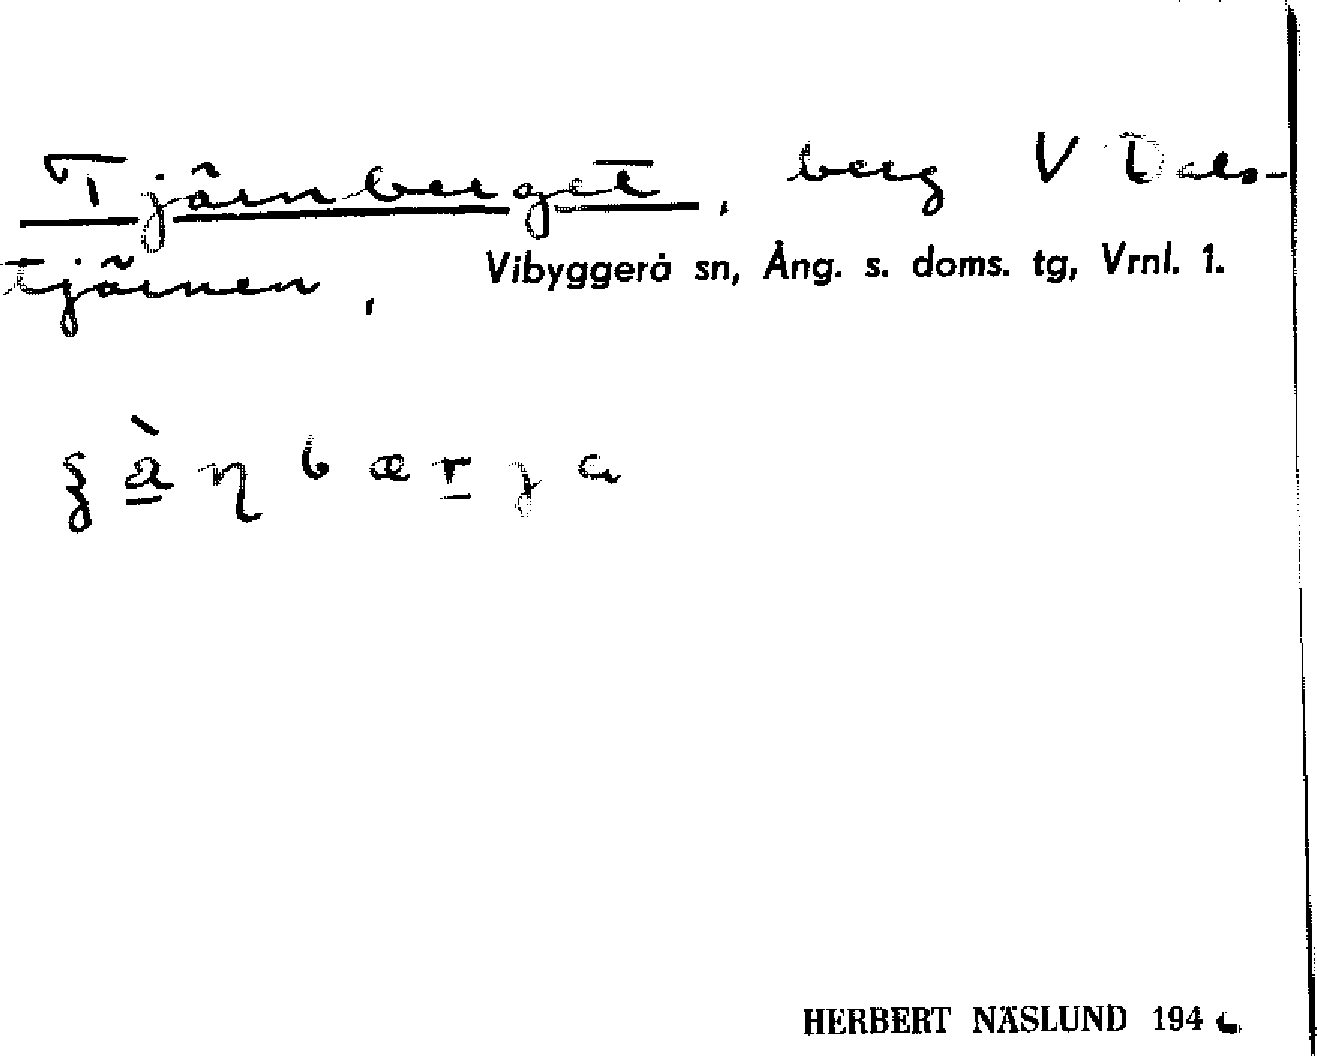 Tjärnberget, berg V Dals-
tjärnen, Vibyggerå sn, Ång. s. doms. tg, Vrnl. 1.
HERBERT NÄSLUND 1946